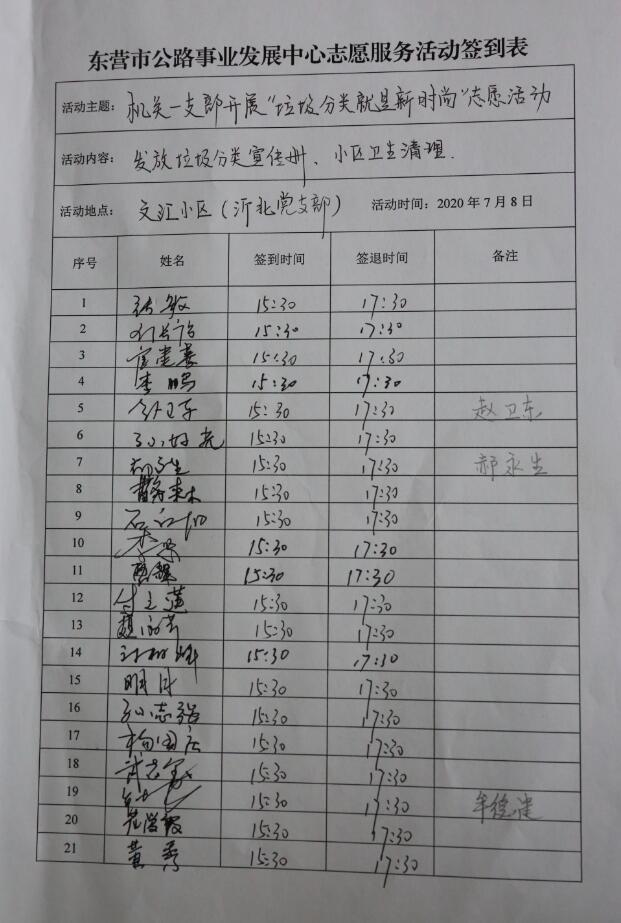 东营市公路事业发展中心志愿服务活动签到表
活动主题： 机关一支部开展“垃圾分类就是新时尚”志愿活动
活动内容： 发放垃圾分类宣传册、小区卫生清理.
活动地点： 文汇小区（沂北党支部） 活动时间：2020年7月8日
序号 姓名 签到时间 签退时间 备注
1 张敏 15:30 17:30
2 15:30 17:30
3 15:30 17:30
4 李鹏 15:30 17:30
5 15:30 17:30 赵卫东
6 15:30 17:30
7 郝永生 15:30 17:30 郝永生
8 15:30 17:30
9 15:30 17:30
10 15:30 17:30
11 15:30 17:30
12 15:30 17:30
13 15:30 17:30
14 15:30 17:30
15 明月 15:30 17:30
16 孙志强 15:30 17:30
17 杨国庆 15:30 17:30
18 15:30 17:30
19 15:30 17:30
20 15:30 17:30
21 黄秀 15:30 17:30